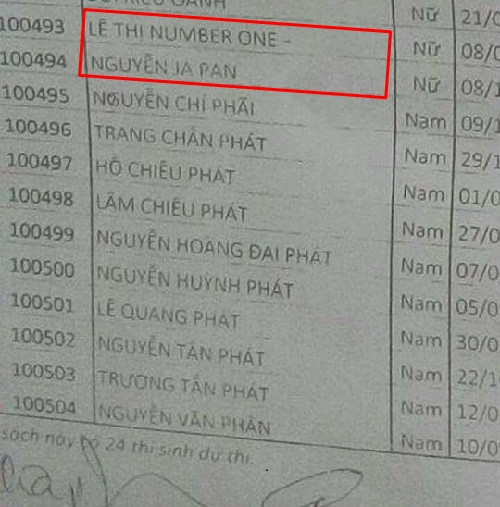 OANH Nữ 21/0
100493 LÊ THỊ NUMBER ONE - Nữ 08/0
100494 NGUYỄN JA PAN Nữ 08/1
100495 NGUYỄN CHÍ PHÃI Nam 09/1
100496 TRANG CHẤN PHÁT Nam 29/1
100497 HỒ CHIẾU PHÁT Nam 01/0
100498 LÂM CHIÊU PHÁT Nam 27/0
100499 NGUYỄN HOÀNG ĐẠI PHÁT Nam 07/0
100500 NGUYỄN HUỲNH PHÁT Nam 05/0
100501 LÊ QUANG PHÁT Nam 30/0
100502 NGUYỄN TẤN PHÁT Nam 22/1
100503 TRƯƠNG TẤN PHÁT Nam 12/0
100504 NGUYỄN VĂN PHẬN Nam 10/0
sách này có 24 thí sinh dự thi.